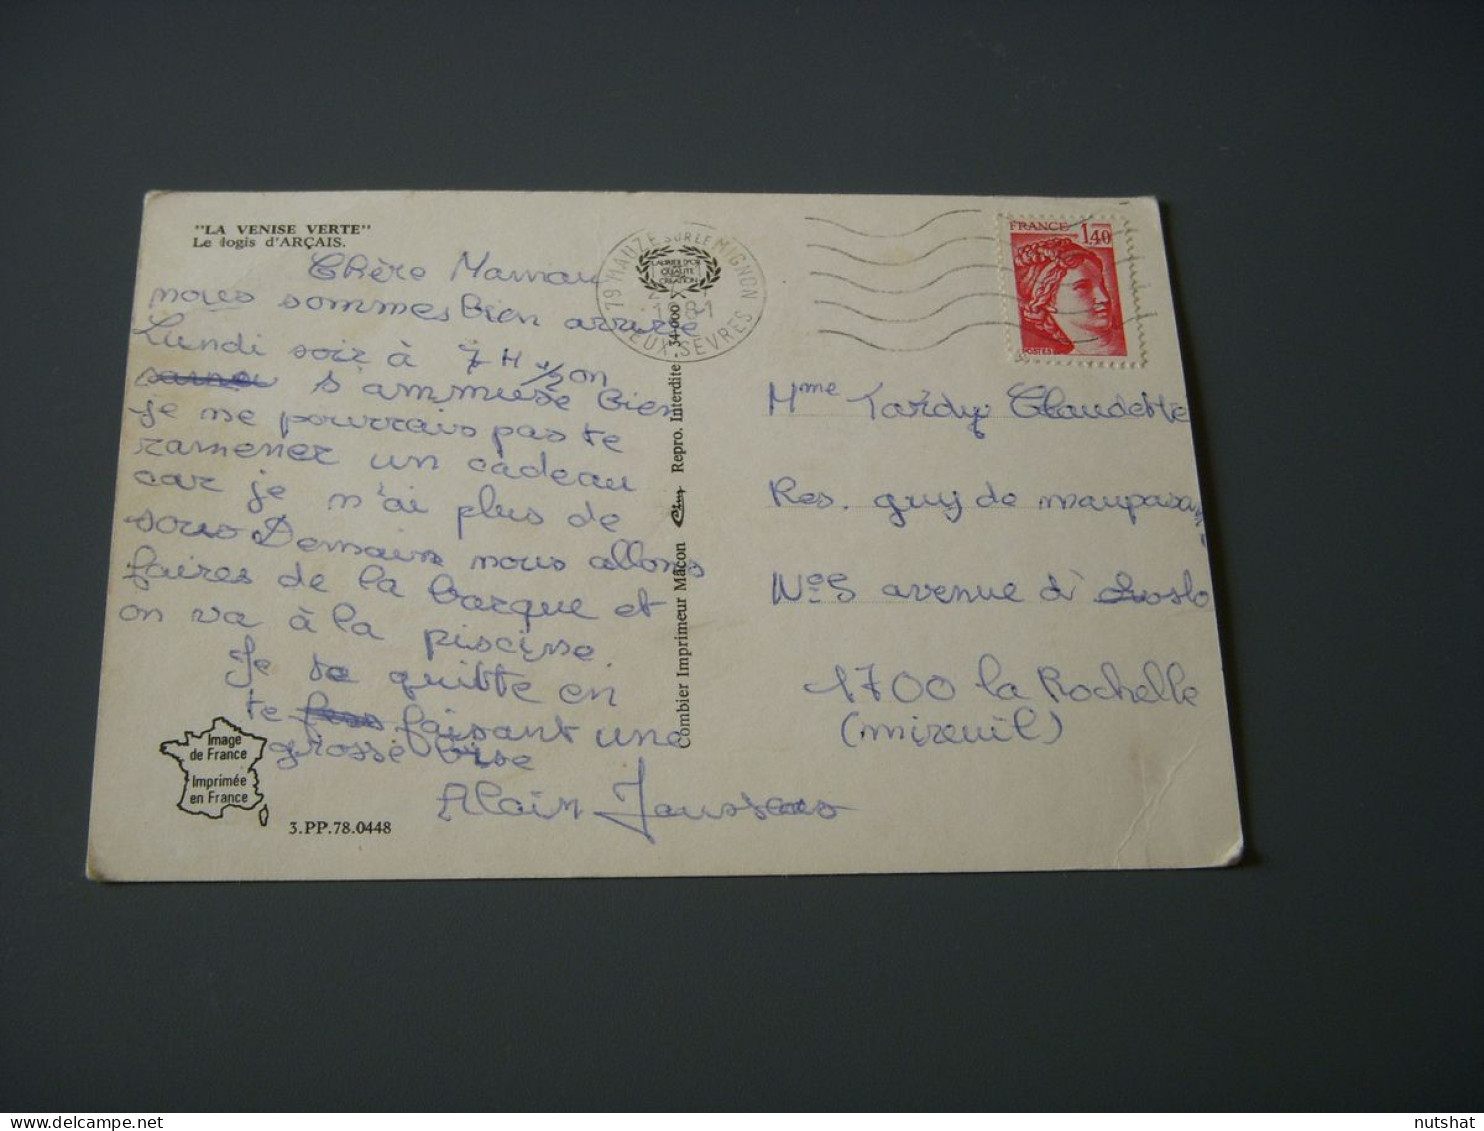 "LA VENISE VERTE"
Le logis d'ARÇAIS.
Chère Maman
nous sommes bien arrivée
Lundi soir à 7 H 1/2 on
s'ammuse bien
je ne pourrais pas te
ramener un cadeau
car je n'ai plus de
sous Demain nous allons
faires de la barque et
on va à la piscine.
Je te quitte en
te faisant une
grosse bise
Alain
Image
de France
Imprimée
en France
3.PP.78.0448
Combier Imprimeur Mâcon Cim Repro. Interdite 34-000
LAURIER D'OR
QUALITÉ
CRÉATION
79 MAUZE SUR LE MIGNON
DEUX-SEVRES
FRANCE
1,40
POSTES
Mme Tardy Claudette
Res. guy de maupassant
N°5 avenue d'
1700 la Rochelle
(mireuil)
nutshat